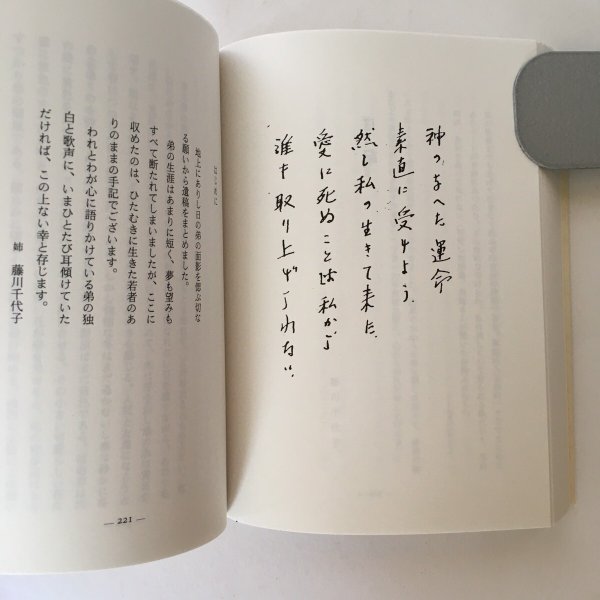 神の与へた運命
素直に受けよう.
然し私の生きて来た、
愛に死ぬことは私から
誰も取り上げられない.
はじめに
地上にありし日の弟の面影を偲ぶ切な
る願いから遺稿をまとめました。
弟の生涯はあまりに短く、夢も望みも
すべて断たれてしまいましたが、ここに
収めたのは、ひたむきに生きた若者のあ
りのままの手記でございます。
われとわが心に語りかけている弟の独
白と歌声に、いまひとたび耳傾けていた
だければ、この上ない幸と存じます。
姉 藤川千代子
— 221 —